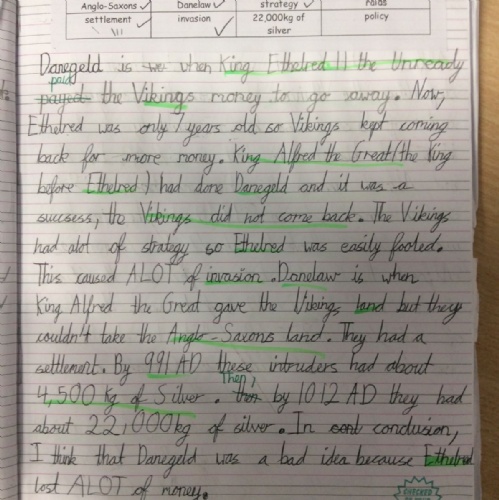 Anglo-Saxons ✓ Danelaw ✓ strategy ✓ raids
settlement ✓ invasion ✓ 22,000kg of silver policy
Danegeld is we when King Ethelred II the Unready
paid
payed the Vikings money to go away. Now,
Ethelred was only 7 years old so Vikings kept coming
back for more money. King Alfred the Great (the King
before Ethelred) had done Danegeld and it was a
sucsess, the Vikings did not come back. The Vikings
had alot of strategy so Ethelred was easily fooled.
This caused ALOT of invasion. Danelaw is when
King Alfred the Great gave the Vikings land but they
couldn't take the Anglo-Saxons land. They had a
settlement. By 991 AD these intruders had about
Then,
4,500 Kg of Silver. then by 1012 AD they had
about 22,000kg of silver. In conclusion,
I think that Danegeld was a bad idea because Ethelred
lost ALOT of money.
CHECKED